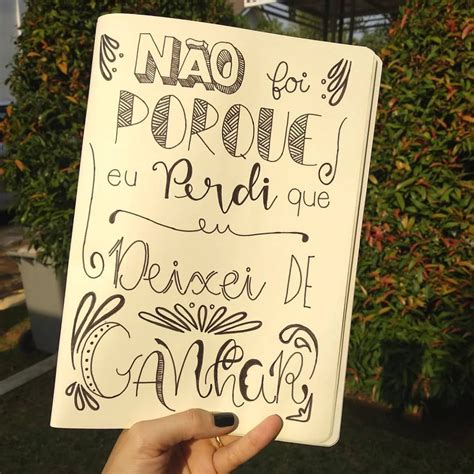 NÃO foi
PORQUE
eu Perdi que
eu
Deixei DE
GANHAR